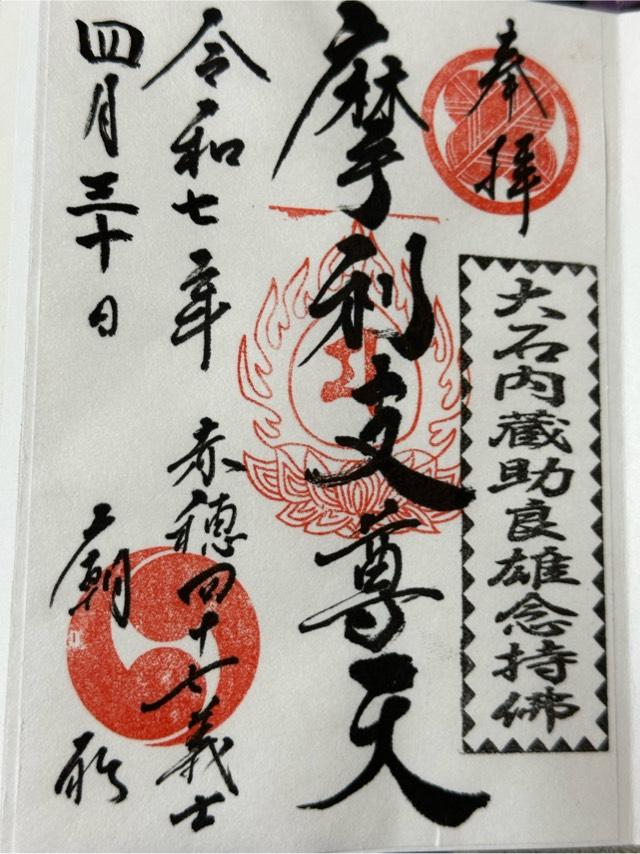 奉拝
大石内蔵助良雄念持佛
摩利支尊天
令和七年
赤穂四十七義士
四月三十日
廟所